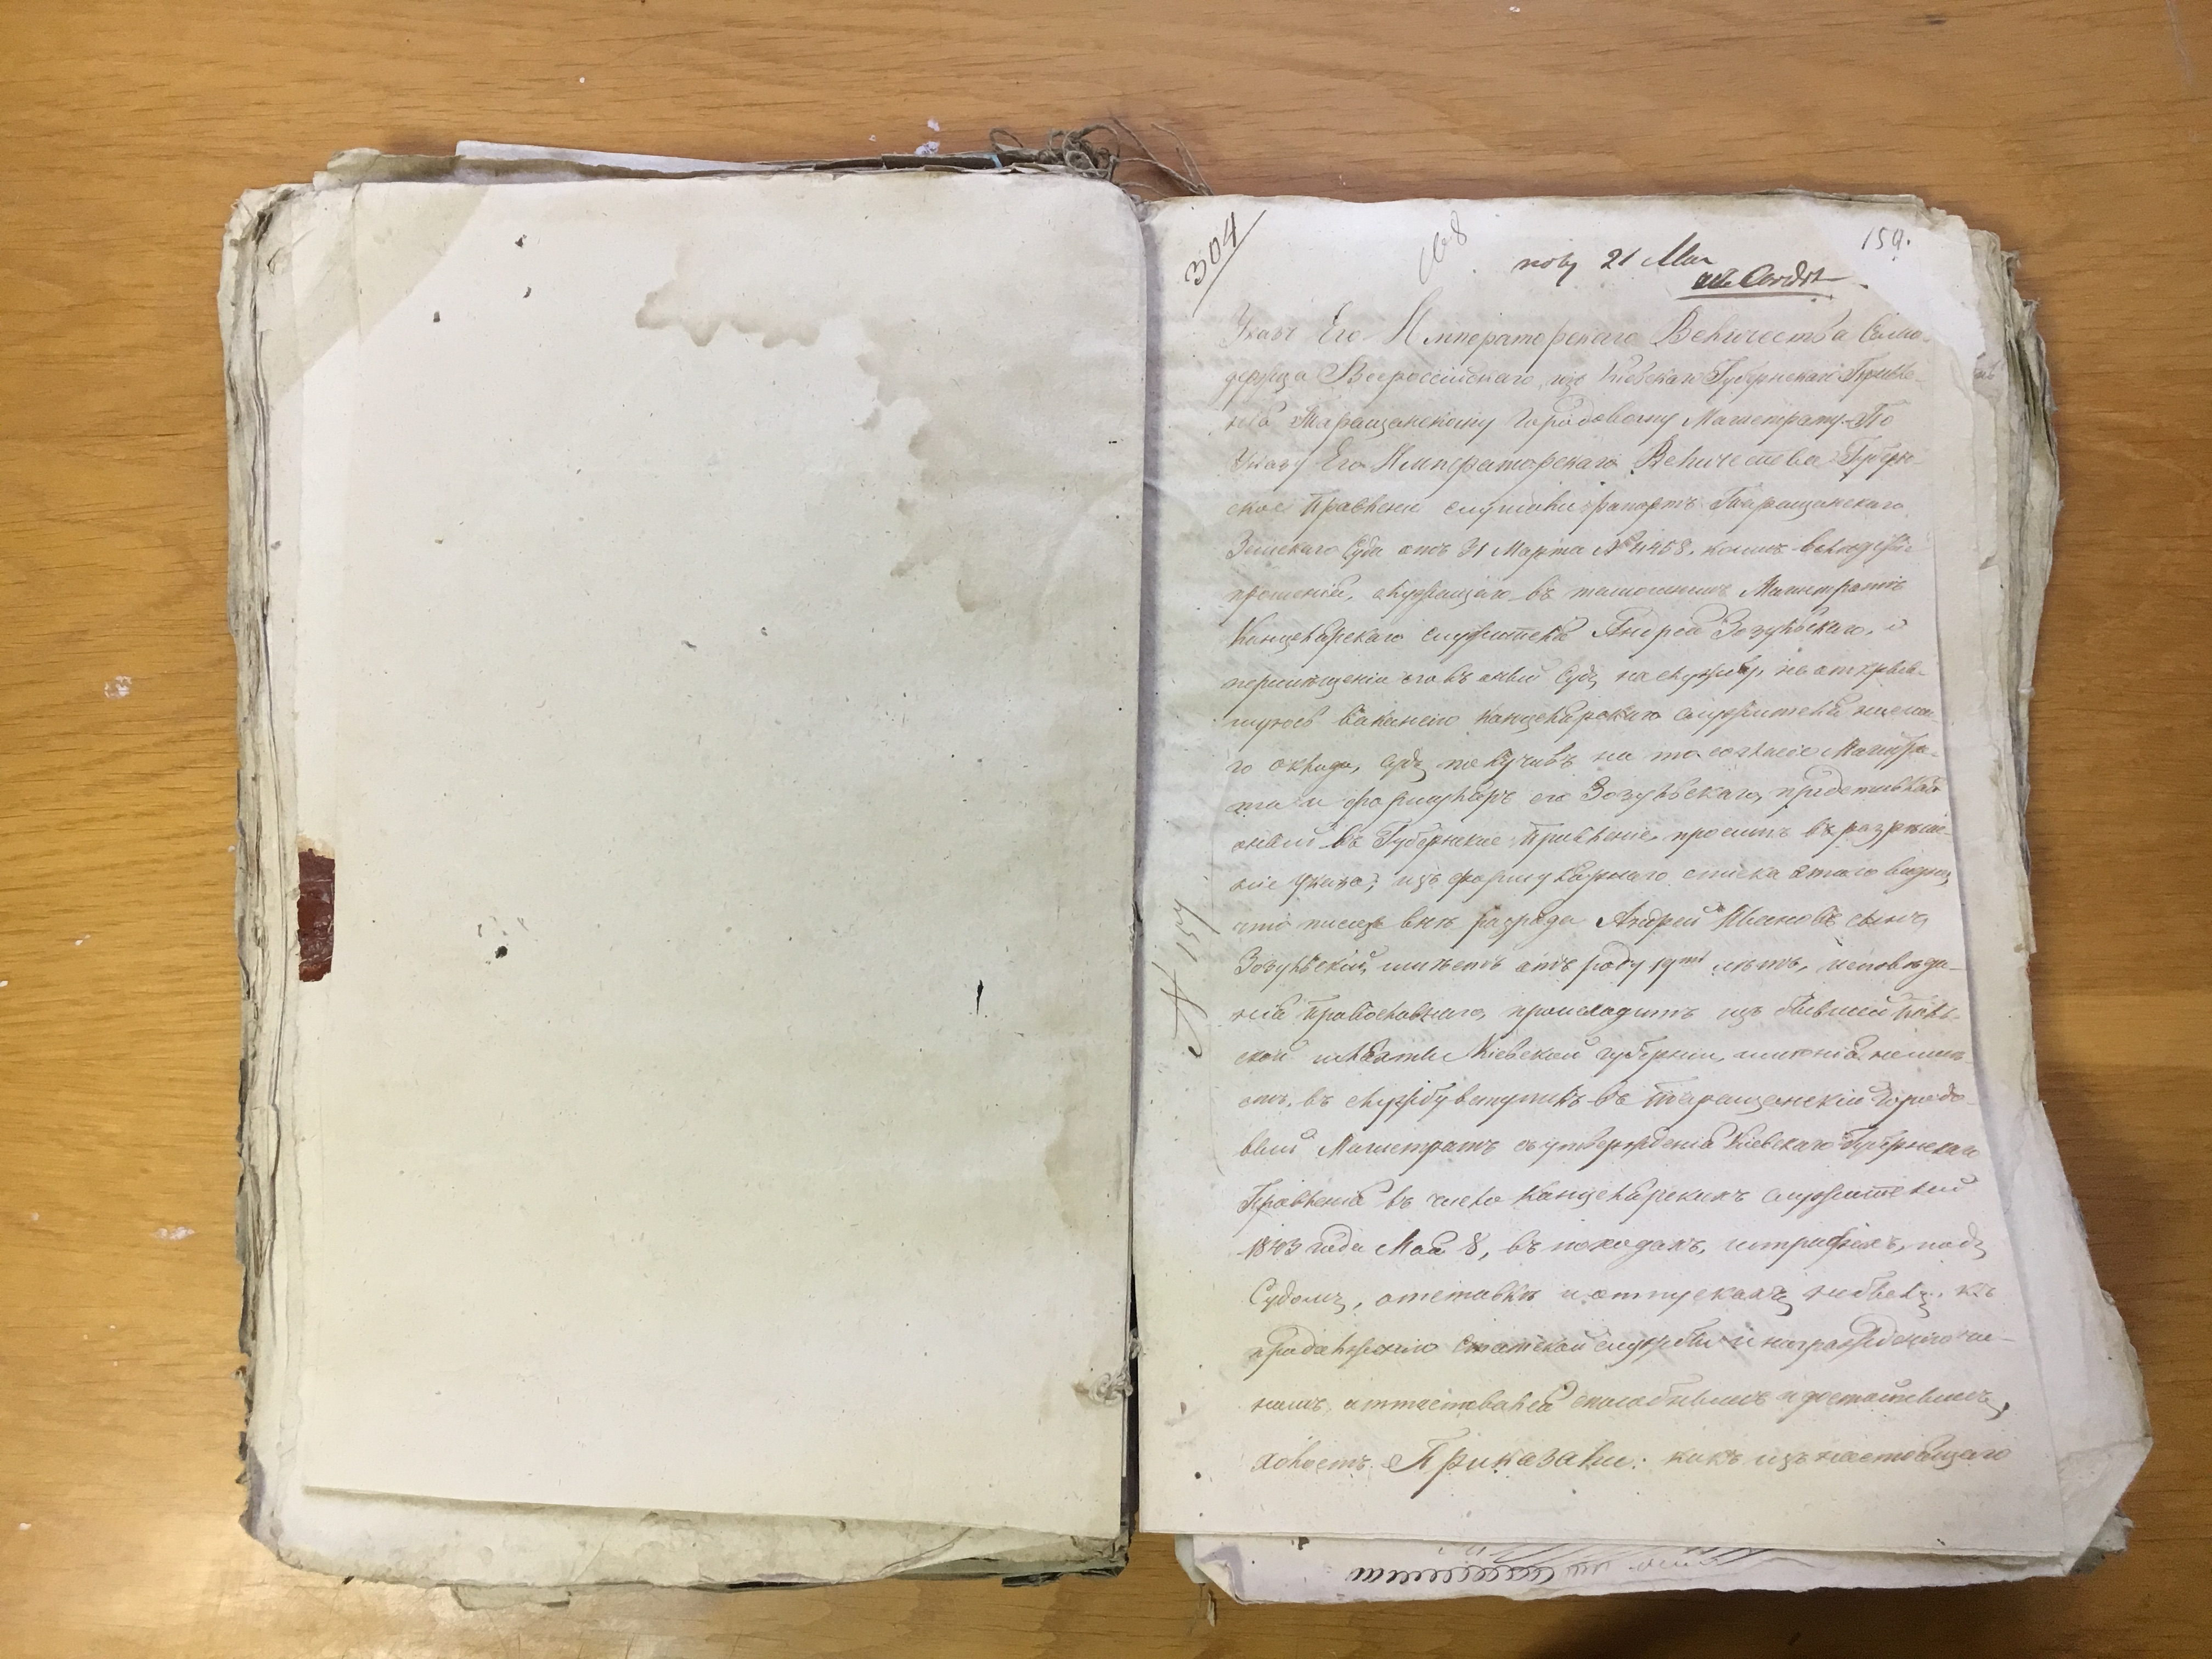 304
168
159.
полу 21 Мая
Указъ Его Императорскаго Величества Само-
держца Всероссійскаго, изъ Кіевскаго Губернскаго Правле-
нія Таращанскому Городовому Магистрату. По
Указу Его Императорскаго Величества Губерн-
ское Правленіе слушали рапортъ Таращанскаго
Земскаго Суда отъ 31 Марта № 4458, коимъ вследствіе
прошенія, служащаго въ тамошнемъ Магистратѣ
Канцелярскаго служителя Андрея Зозульскаго, о
перемѣщеніи его въ оный Судъ на службу, на открыв-
шуюся вакансію канцелярскаго служителя низша-
го оклада, Судъ получивъ на то согласіе Магистра-
та и формуляръ его Зозульскаго, представляя
оный въ Губернское Правленіе, проситъ въ разрѣше-
ніе Указа; изъ формулярнаго списка этаго видно,
что писецъ внѣ разряда Андрей Ивановъ сынъ
Зозульскій, имѣетъ отъ роду 19ть лѣтъ, исповѣда-
нія Православнаго, происходитъ изъ бывшей Поль-
ской шляхты Кіевской губерніи, имѣнія неимѣ-
етъ, въ службу вступилъ въ Таращанскій Городо-
вый Магистратъ съ утвержденія Кіевскаго Губернскаго
Правленія въ число Канцелярскихъ служителей
1843 года Мая 8, въ походахъ, штрафахъ, подъ
Судомъ, отставкѣ и отпускахъ небылъ, къ
продолженію Статской службы и награжденію чи-
номъ аттестовался способнымъ и достойнымъ,
холостъ. Приказали: какъ изъ настоящаго
№ 157